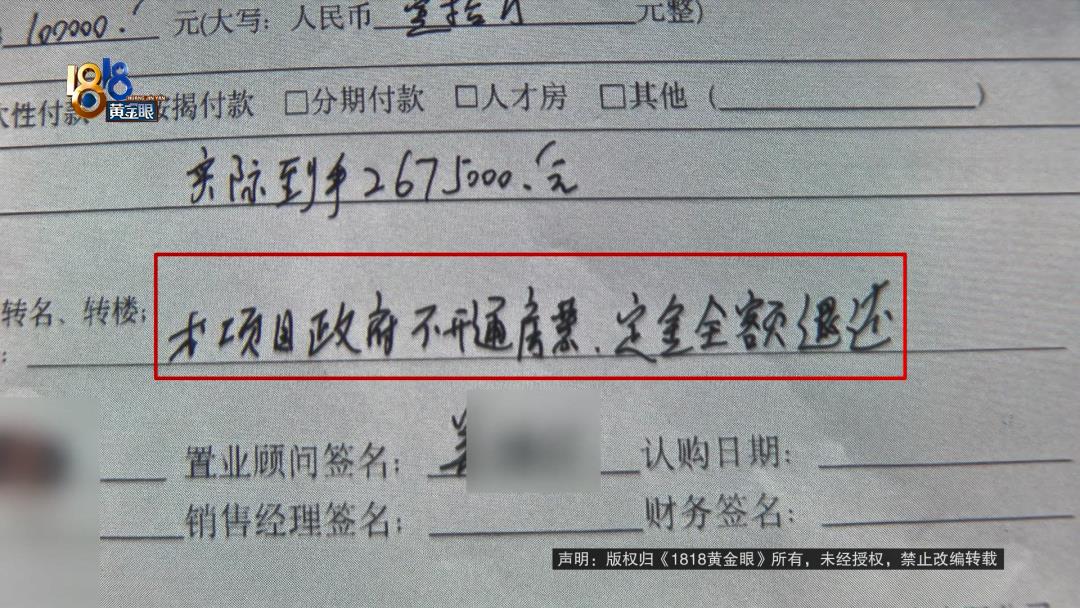 100000. 元(大写:人民币 壹拾万 元整)
1818
HUANG JIN YAN
黄金眼
次性付款 按揭付款 □分期付款 □人才房 □其他 ( )
实际到手2675000.元
转名、转楼;
本项目政府不开通房票、定金全额退还
置业顾问签名: 认购日期:
销售经理签名: 财务签名:
声明:版权归《1818黄金眼》所有,未经授权,禁止改编转载